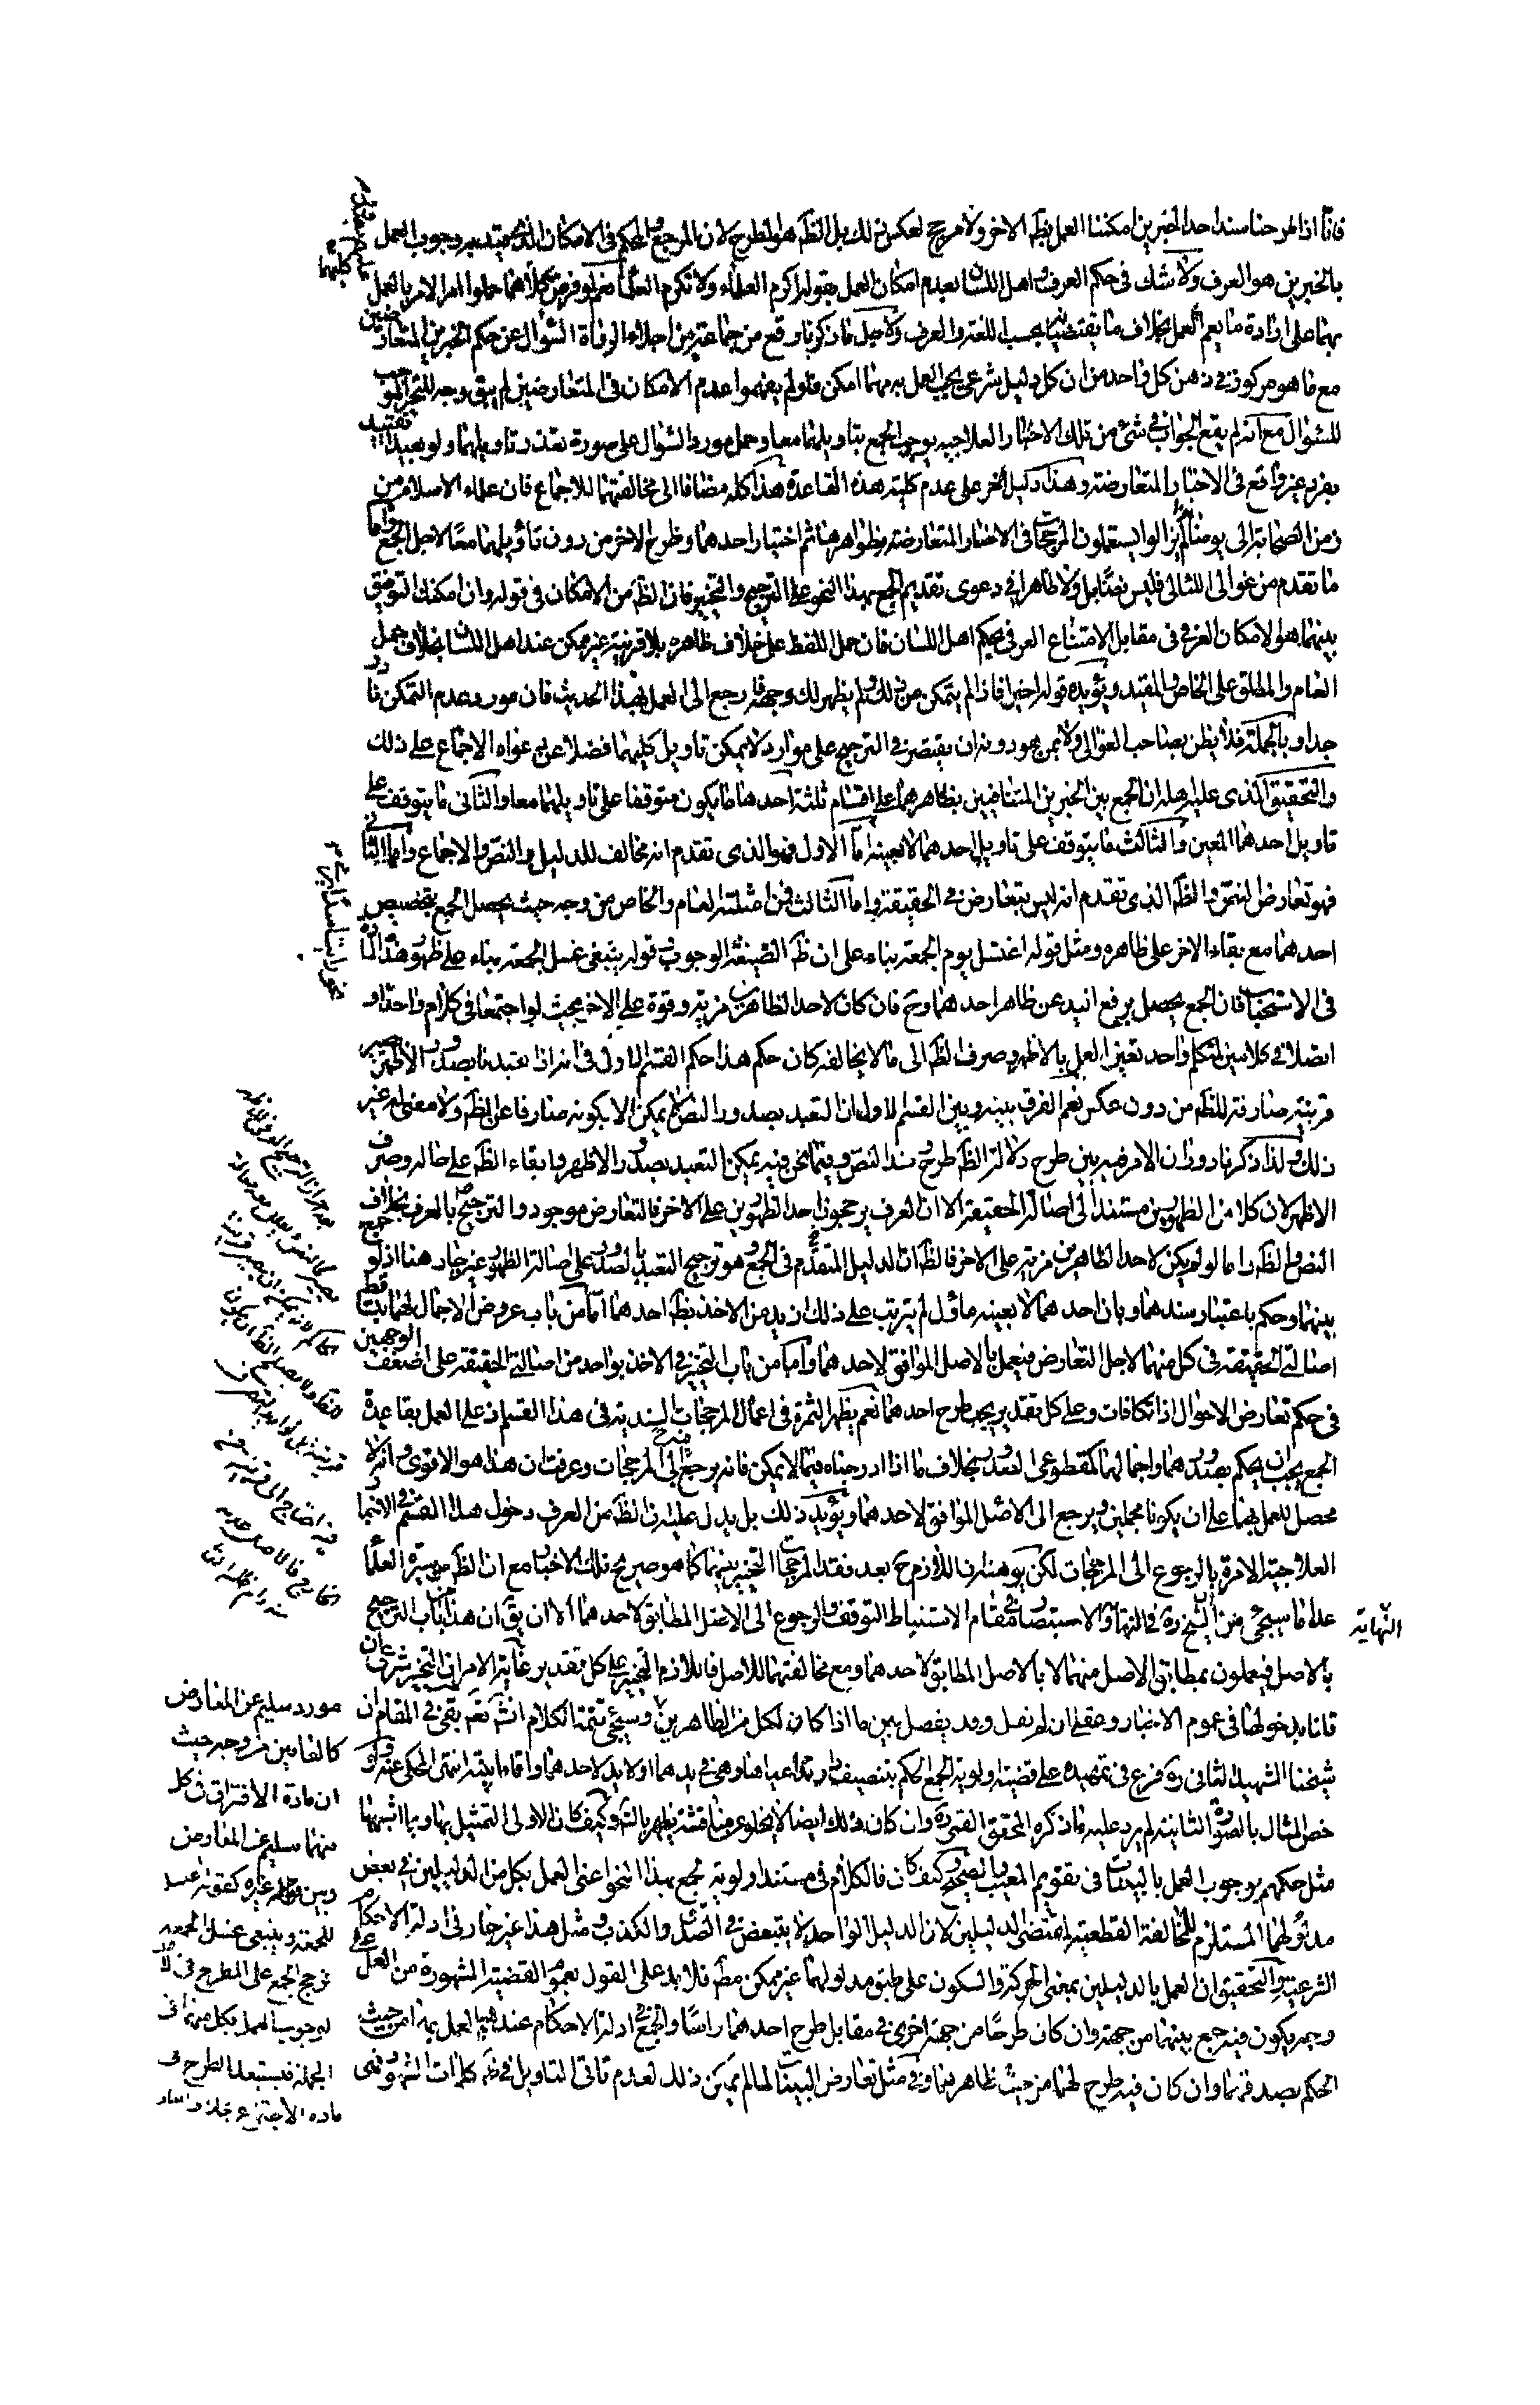 فانا اذا طرحنا سند احد الخبرين امكننا العمل بظه الاخر ولا مرجح لعكس ذلك بل الظه هو الطرح لان المرجع والمحكم فى الامكان الذى قيد به وجوب العمل
بالخبرين هو العرف ولا شك فى حكم العرف واهل اللسان بعدم امكان العمل بقوله اكرم العلماء ولا تكرم العلماء نعم لو فرض علمهم بصدور كليهما حملوا امر الامر بالعمل
بهما على ارادة ما يعم العمل بخلاف ما يقتضيانه بحسب اللغة والعرف ولاجل ما ذكرنا وقع من جماعة من اجلاء الرواة السؤال عن حكم الخبرين المتعارضين
مع ما هو مركوز فى ذهن كل واحد من ان كل دليل شرعى يجب العمل به مهما امكن فلو لم يفهموا عدم الامكان فى المتعارضين لم يبق وجه للتحير الموجب
للسؤال مع انه لم يقع الجواب فى شئ من تلك الاخبار العلاجية بوجوب الجمع بتاويلهما معا وحمل مورد السؤال على صورة تعذر تاويلهما ولو بعيدا تقييد
بفرد غير واقع فى الاخبار المتعارضة وهذا دليل اخر على عدم كلية هذه القاعدة هذا كله مضافا الى مخالفتها للاجماع فان علماء الاسلام من
زمن الصحابة الى يومنا هذا لم يزالوا يستعملون المرجحات فى الاخبار المتعارضة بظواهرها ثم اختيار احدهما وطرح الاخر من دون تاويلهما معا لاجل الجمع واما
ما تقدم من غوالى اللئالى فليس نصا بل ولا ظاهرا فى دعوى تقديم الجمع بهذا النحو على الترجيح والتخيير فان الظه من الامكان فى قوله وان امكنك التوفيق
بينهما هو الامكان العرفى فى مقابل الامتناع العرفى بحكم اهل اللسان فان حمل اللفظ على خلاف ظاهره بلا قرينة غير ممكن عند اهل اللسان بخلاف حمل
العام والمطلق على الخاص والمقيد ويؤيده قوله اخيرا فاذا لم يتمكن من ذلك ولم يظهر لك وجهه فارجع الى العمل بهذا الحديث فان مورد عدم التمكن نادر
جدا وبالجملة فلا يظن بصاحب الغوالى ولا بمن هو دونه ان يقتصر فى الترجيح على موارد لا يمكن تاويل كليهما فضلا عن دعواه الاجماع على ذلك
والتحقيق الذى عليه اهله ان الجمع بين الخبرين المتنافيين بظاهرهما على اقسام ثلثة احدها ما يكون متوقفا على تاويلهما معا والثانى ما يتوقف على
تاويل احدهما المعين والثالث ما يتوقف على تاويل احدهما لا بعينه اما الاول فهو الذى تقدم انه مخالف للدليل والنص والاجماع واما الثانى
فهو تعارض النص والظه الذى تقدم انه ليس بتعارض فى الحقيقة واما الثالث فمن امثلته العام والخاص من وجه حيث يحصل الجمع بتخصيص
احدهما مع بقاء الاخر على ظاهره ومثل قوله اغتسل يوم الجمعة بناء على ان ظه الصيغة الوجوب وقوله ينبغى غسل الجمعة بناء على ظهور هذه المادة
فى الاستحباب فان الجمع يحصل برفع اليد عن ظاهر احدهما وح فان كان لاحد الظاهرين مزية وقوة على الاخر بحيث لو اجتمعا فى كلام واحد او
اتصلا فى كلامين لمتكلم واحد تعين العمل بالاظهر وصرف الظه الى ما لا يخالفه كان حكم هذا حكم القسم الاول فى انه اذا تعبد بصدور الاظهر يصير
قرينة صارفة للظه من دون عكس نعم الفرق بينه وبين القسم الاول ان التعبد بصدور النص لا يمكن الا بكونه صارفا عن الظه ولا معنى له غير
ذلك ولذا ذكرنا دوران الامر فيه بين طرح دلالة الظه وطرح سند النص وفيما نحن فيه يمكن التعبد بصدور الاظهر وابقاء الظه على حاله وصرف
الاظهر لان كلا من الظهورين مستند الى اصالة الحقيقة الا ان العرف يرجحون احد الظهورين على الاخر فالتعارض موجود والترجيح بالعرف بخلاف
النص والظه واما لو لم يكن لاحد الظاهرين مزية على الاخر فالظه ان الدليل المتقدم فى الجمع وهو ترجيح التعبد بالصدور على اصالة الظهور غير جار هنا اذ لو جمع
بينهما وحكم باعتبار سندهما وبان احدهما لا بعينه مأول لم يترتب على ذلك ازيد من الاخذ بظه احدهما اما من باب عروض الاجمال لهما بتساقط
اصالتى الحقيقة فى كل منهما لاجل التعارض فيعمل بالاصل الموافق لاحدهما واما من باب التخيير فى الاخذ بواحد من اصالتى الحقيقة على اضعف الوجهين
فى حكم تعارض الاحوال اذا تكافأت وعلى كل تقدير يجب طرح احدهما نعم يظهر الثمرة فى اعمال المرجحات السندية فى هذا القسم اذ على العمل بقاعدة
الجمع يجب ان يحكم بصدورهما واجمالهما كمقطوعى الصدور بخلاف ما اذا ادرجناه فيما لا يمكن فانه يرجع فيه الى المرجحات وعرفت ان هذا هو الاقوى وانه لا
محصل للعمل بهما على ان يكونا مجملين ويرجع الى الاصل الموافق لاحدهما ويؤيد ذلك بل يدل عليه ان الظه من العرف دخول هذا القسم فى الاخبار
العلاجية الامرة بالرجوع الى المرجحات لكن يوهنه ان اللازم ح بعد فقد المرجحات التخيير بينهما كما هو صريح تلك الاخبار مع ان الظه من سيرة العلماء
عدا ما سيجئ من الشيخ ره فى النهاية والاستبصار فى مقام الاستنباط التوقف والرجوع الى الاصل المطابق لاحدهما الا ان يق ان هذا من باب الترجيح
النهاية
بالاصل فيعملون بمطابق الاصل منهما لا بالاصل المطابق لاحدهما ومع مخالفتهما للاصل فاللازم التخيير على كل تقدير غاية الامر ان التخيير شرعى ان
قلنا بدخولهما فى عموم الاخبار وعقلى ان لم نقل وقد يفصل بين ما اذا كان لكل من الظاهرين مورد سليم عن المعارض
كالعامين من وجه حيث
ان مادة الافتراق فى كل
منهما سليم عن المعارض
وبين غيره كقوله اغتسل
للجمعة وينبغى غسل الجمعة
فيرجح الجمع على الطرح فى الاول
لوجوب العمل بكل منهما فى
الجملة فيستبعد الطرح فى
مادة الاجتماع بخلاف الثانى
وسيجئ تتمة الكلام انشاء الله تعالى بقى فى المقام ان
شيخنا الشهيد الثانى ره فرع فى تمهيده على قضية اولوية الجمع الحكم بتنصيف دار تداعياها وهى فى يدهما او لا يد لاحدهما واقاما بينة انتهى المحكى عنه ولو
خص المثال بالصورة الثانية لم يرد عليه ما ذكره المحقق القمى ره وان كان ذلك ايضا لا يخلو عن مناقشة يظهر بالتامل وكيف كان الاولى التمثيل بها وبما اشبهها
مثل حكمهم بوجوب العمل بالبينات فى تقويم المعيب والصحيح وكيف كان فالكلام فى مستند اولوية الجمع بهذا النحو اعنى العمل بكل من الدليلين فى بعض
مدلولهما المستلزم للمخالفة القطعية لمقتضى الدليلين لان الدليل الواحد لا يتبعض فى الصدق والكذب ومثل هذا غير جار فى ادلة الاحكام
الشرعية والتحقيق ان العمل بالدليلين بمعنى الحركة والسكون على طبق مدلولهما غير ممكن مطلقا فلا بد على القول بعموم القضية المشهورة من العمل على
وجه يكون فيه جمع بينهما من جهة وان كان طرحا من جهة اخرى فى مقابل طرح احدهما راسا والجمع فى ادلة الاحكام عندهم العمل بهما من حيث
الحكم بصدقهما وان كان فيه طرح لهما من حيث ظاهرهما وفى مثل تعارض البينات لما لم يمكن ذلك لعدم تاتى التاويل فى ظه كلمات الشهود فهى